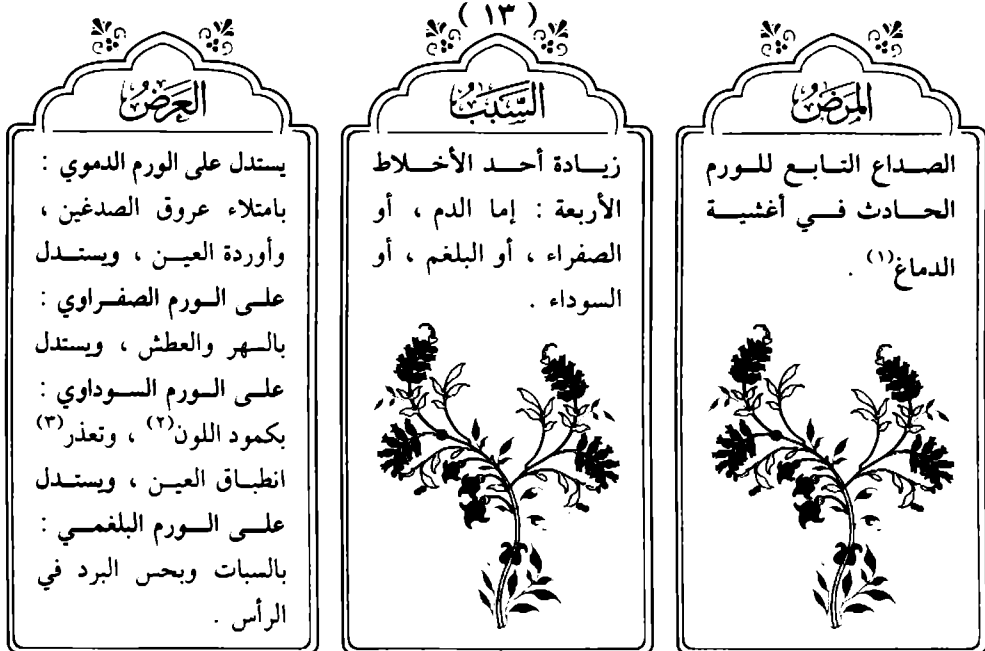 ( ١٣ )
المَرَضُ
الصداع التابع للورم
الحادث في أغشية
الدماغ(١) .
السَّبَبُ
زيادة أحد الأخلاط
الأربعة : إما الدم ، أو
الصفراء ، أو البلغم ، أو
السوداء .
العَرَضُ
يستدل على الورم الدموي :
بامتلاء عروق الصدغين ،
وأوردة العين ، ويستدل
على الورم الصفراوي :
بالسهر والعطش ، ويستدل
على الورم السوداوي :
بكمود اللون(٢) ، وتعذر(٣)
انطباق العين ، ويستدل
على الورم البلغمي :
بالسبات وبحس البرد في
الرأس .